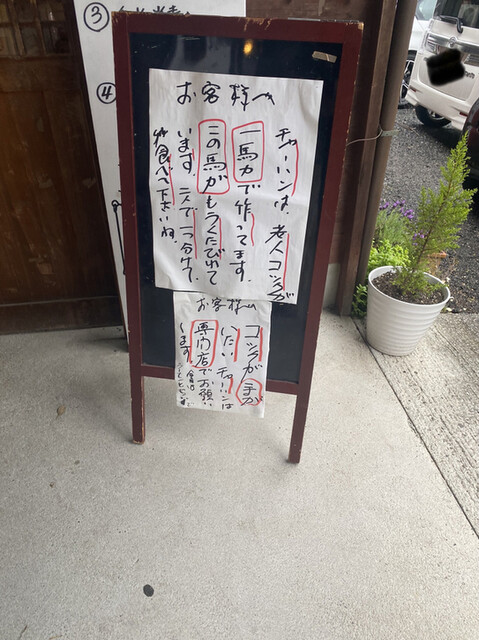 ③
④
お客様へ
チャーハンは、老人コックが
一馬力で作ってます。
この馬がもうくたびれて
います。二人で一つ分けて
食べて下さいね。
お客様へ
コックが手が
いたい チャーハンは
専門店でお願い
します。